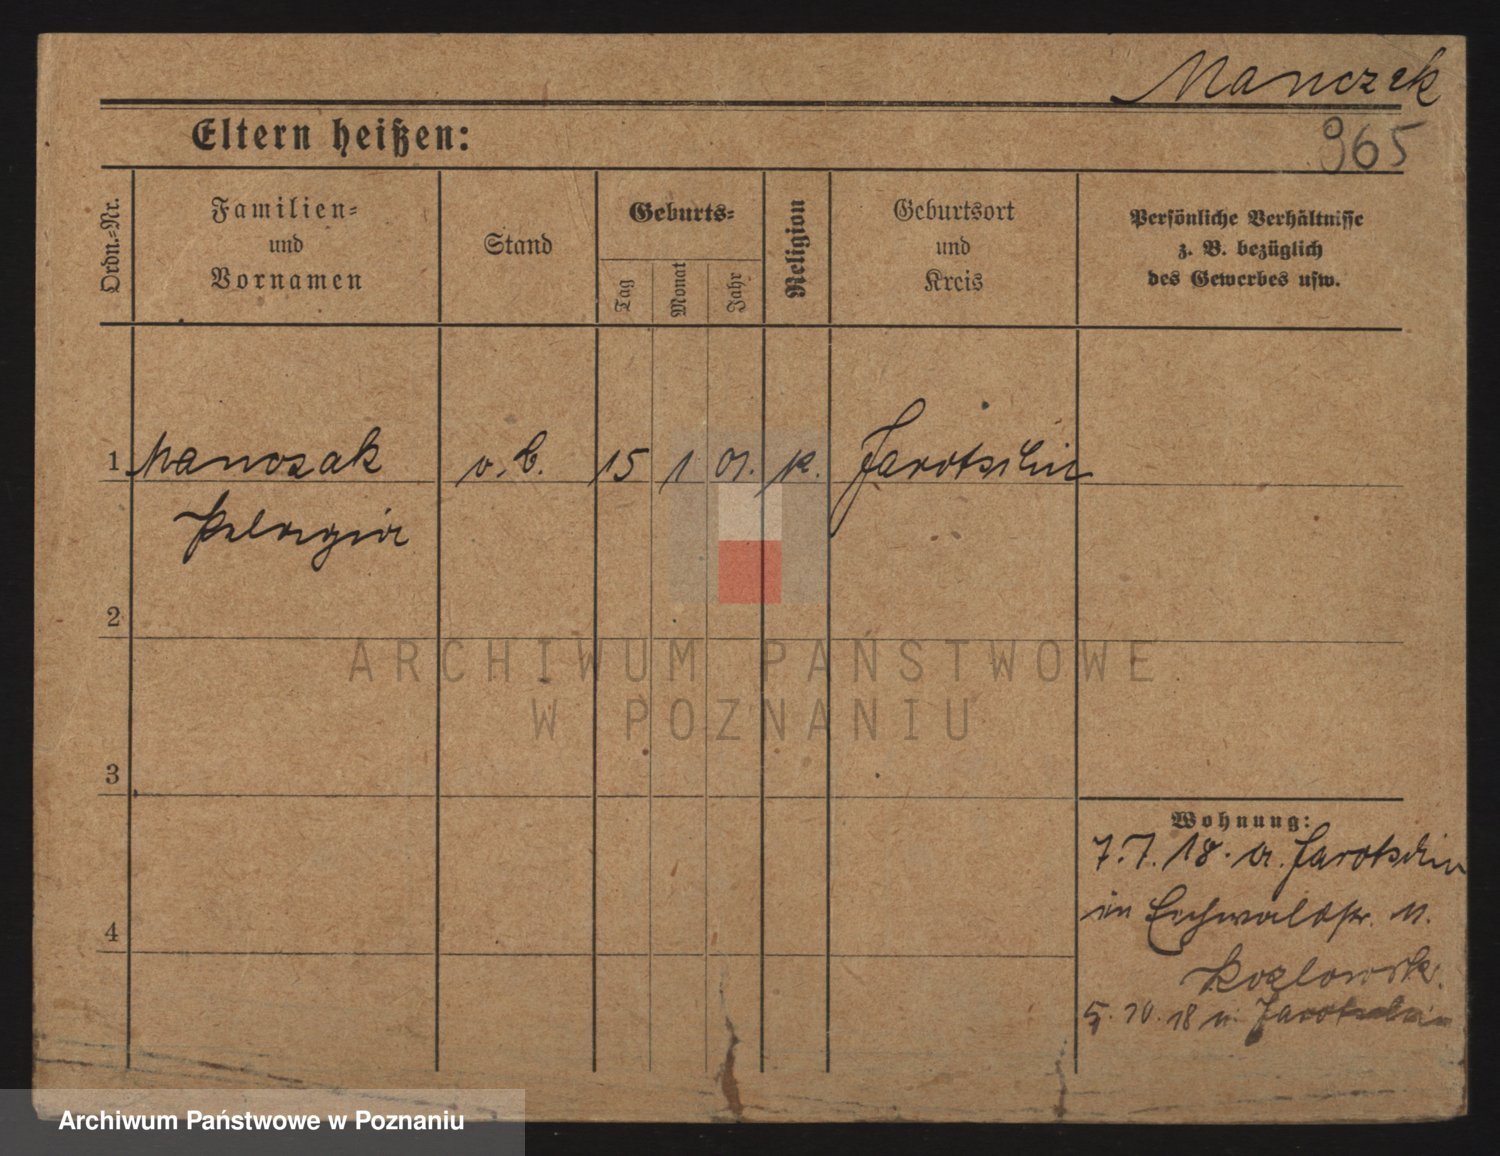 Manczek
965
Eltern heißen:
Ordn.-Nr.
Familien-
und
Vornamen
Stand
Geburts-
Tag
Monat
Jahr
Religion
Geburtsort
und
Kreis
Persönliche Verhältnisse
z. B. bezüglich
des Gewerbes usw.
1 Manczak o. B. 15 1 01. k. Jarotschin
Pelagia
2
3
4
Wohnung:
7. 7. 18. a. Jarotschin
in Eichwaldstr. 11.
Kozlowsk.
5. 10. 18 n. Jarotschin
ARCHIWUM PAŃSTWOWE
W POZNANIU
Archiwum Państwowe w Poznaniu